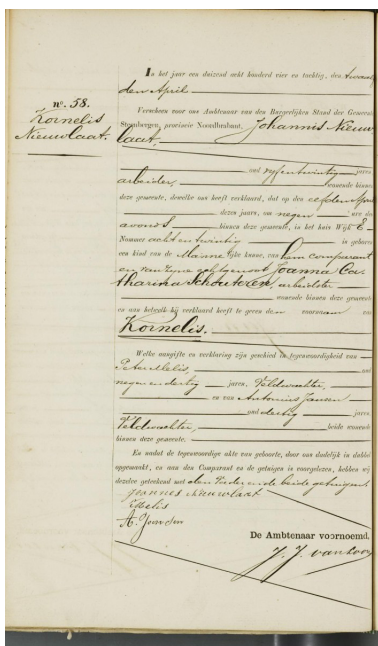 nº. 58.
Kornelis
Nieuwlaat.
In het jaar een duizend acht honderd vier en tachtig, den
den April
Verscheen voor ons Ambtenaar van den Burgerlijken Stand der Gemeente
Steenbergen, provincie Noordbrabant, Johannis Nieuw
laat,
oud vyfentwintig jaren
arbeider, wonende binnen
deze gemeente, dewelke ons heeft verklaard, dat op den elfden April
dezes jaars, om negen ure des
avonds binnen deze gemeente, in het huis Wijk E
Nummer acht en twintig is geboren
een kind van de Manne lijke kunne, van hem comparant
en van zyne echtgenoot Joanna Ca-
tharina Schouteren, arbeidster
wonende binnen deze gemeente
en aan hetwelk hij verklaard heeft te geven den voornaam van
Kornelis.
Welke aangifte en verklaring zijn geschied in tegenwoordigheid van
Pieter Melis, oud
negen en dertig jaren, Veldwachter,
en van Antonius Jansen
oud dertig jaren
Veldwachter, beide wonende
binnen deze gemeente.
En nadat de tegenwoordige akte van geboorte, door ons dadelijk in dubbel
opgemaakt, en aan den Comparant en de getuigen is voorgelezen, hebben wij
dezelve geteekend met den Vader en de beide getuigen.
Joannes Nieuwlaat
Melis
A. Jansen
De Ambtenaar voornoemd,
J. J. van Loon